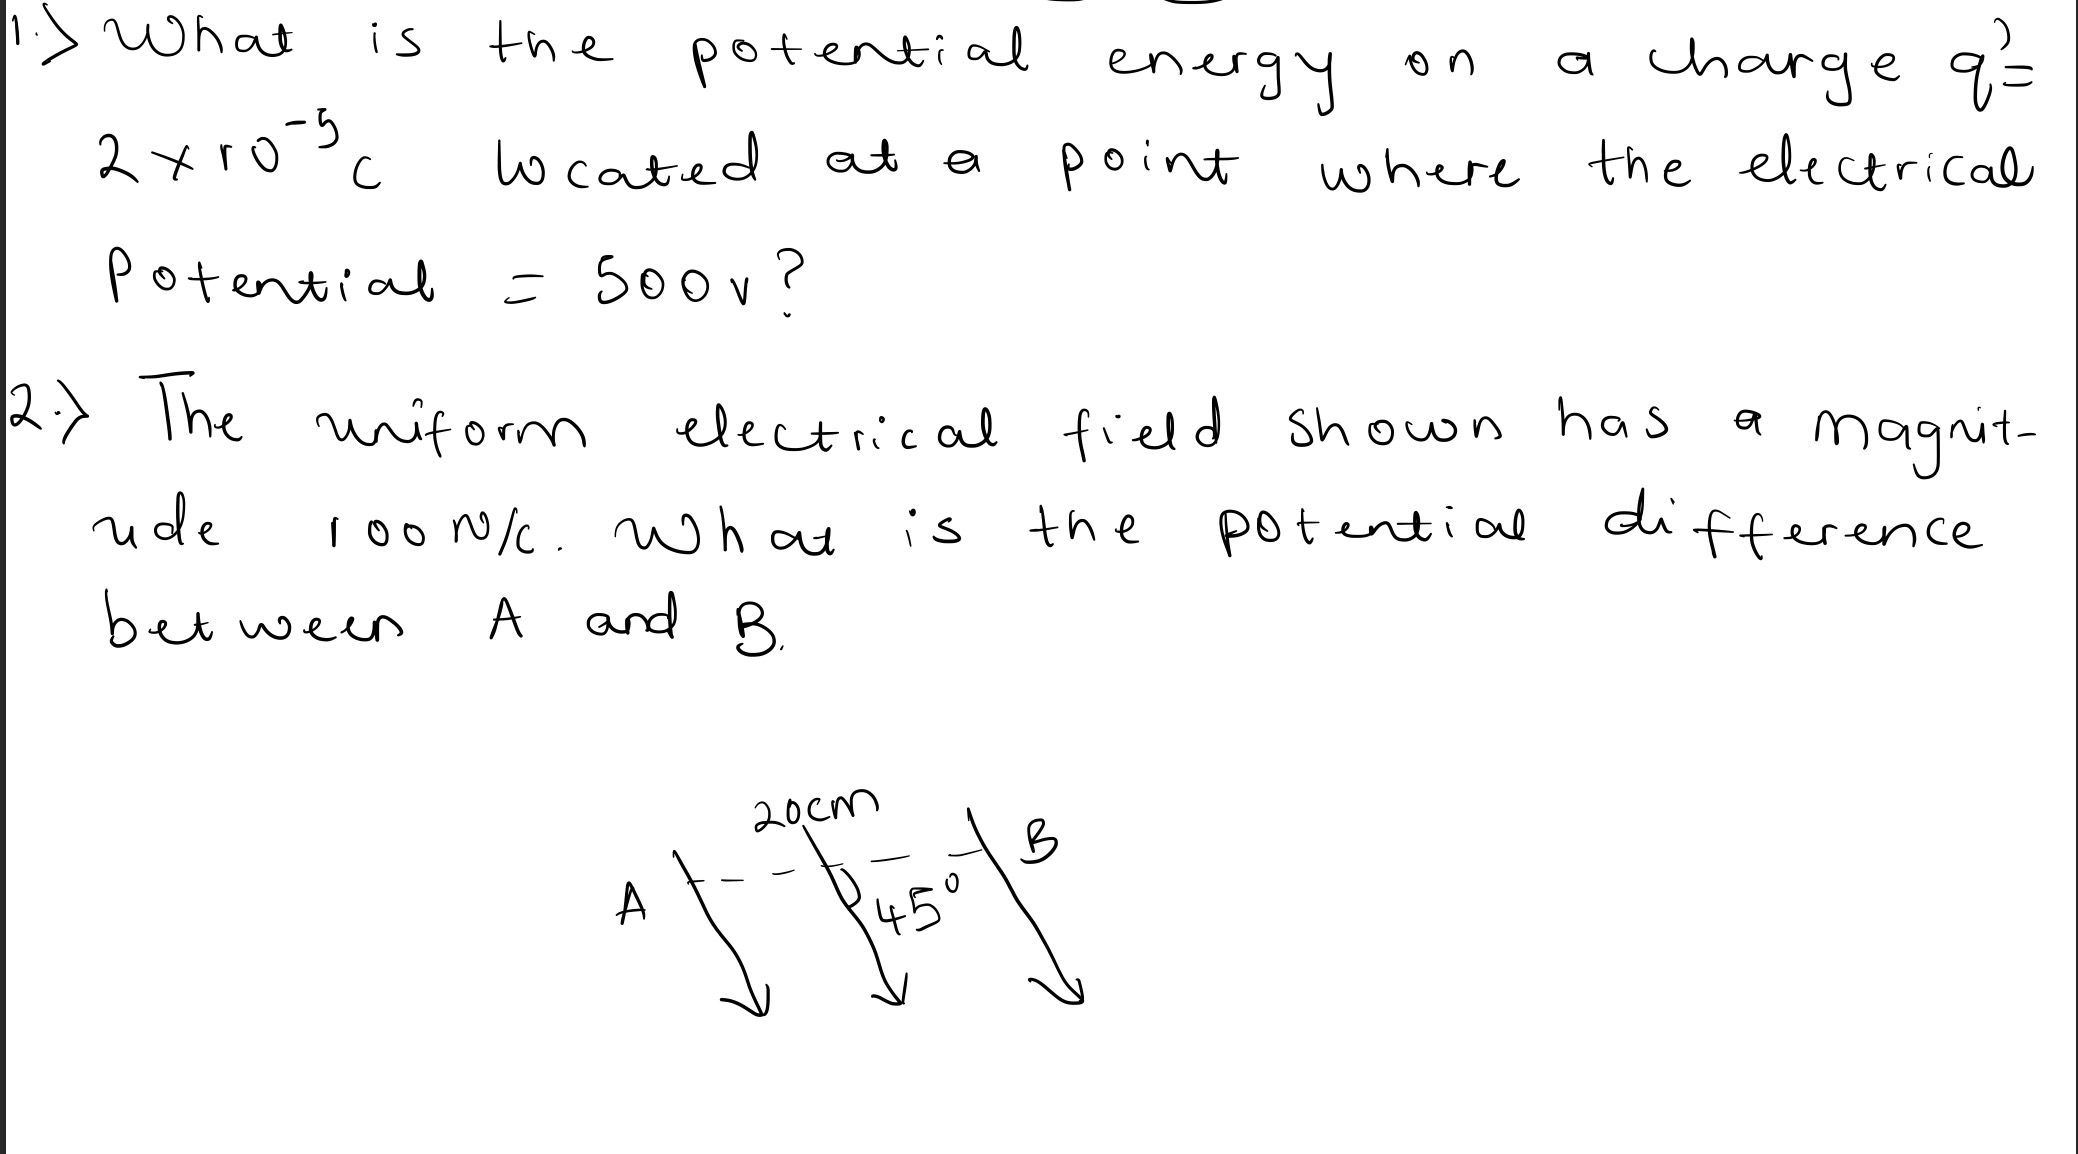 1.> What is the potential energy on a charge q'=
2×10⁻⁵c located at a point where the electrical
Potential = 500v?
2.> The uniform electrical field shown has a magnit-
ude 100N/c. What is the potential difference
between A and B.
20cm
A B
45°